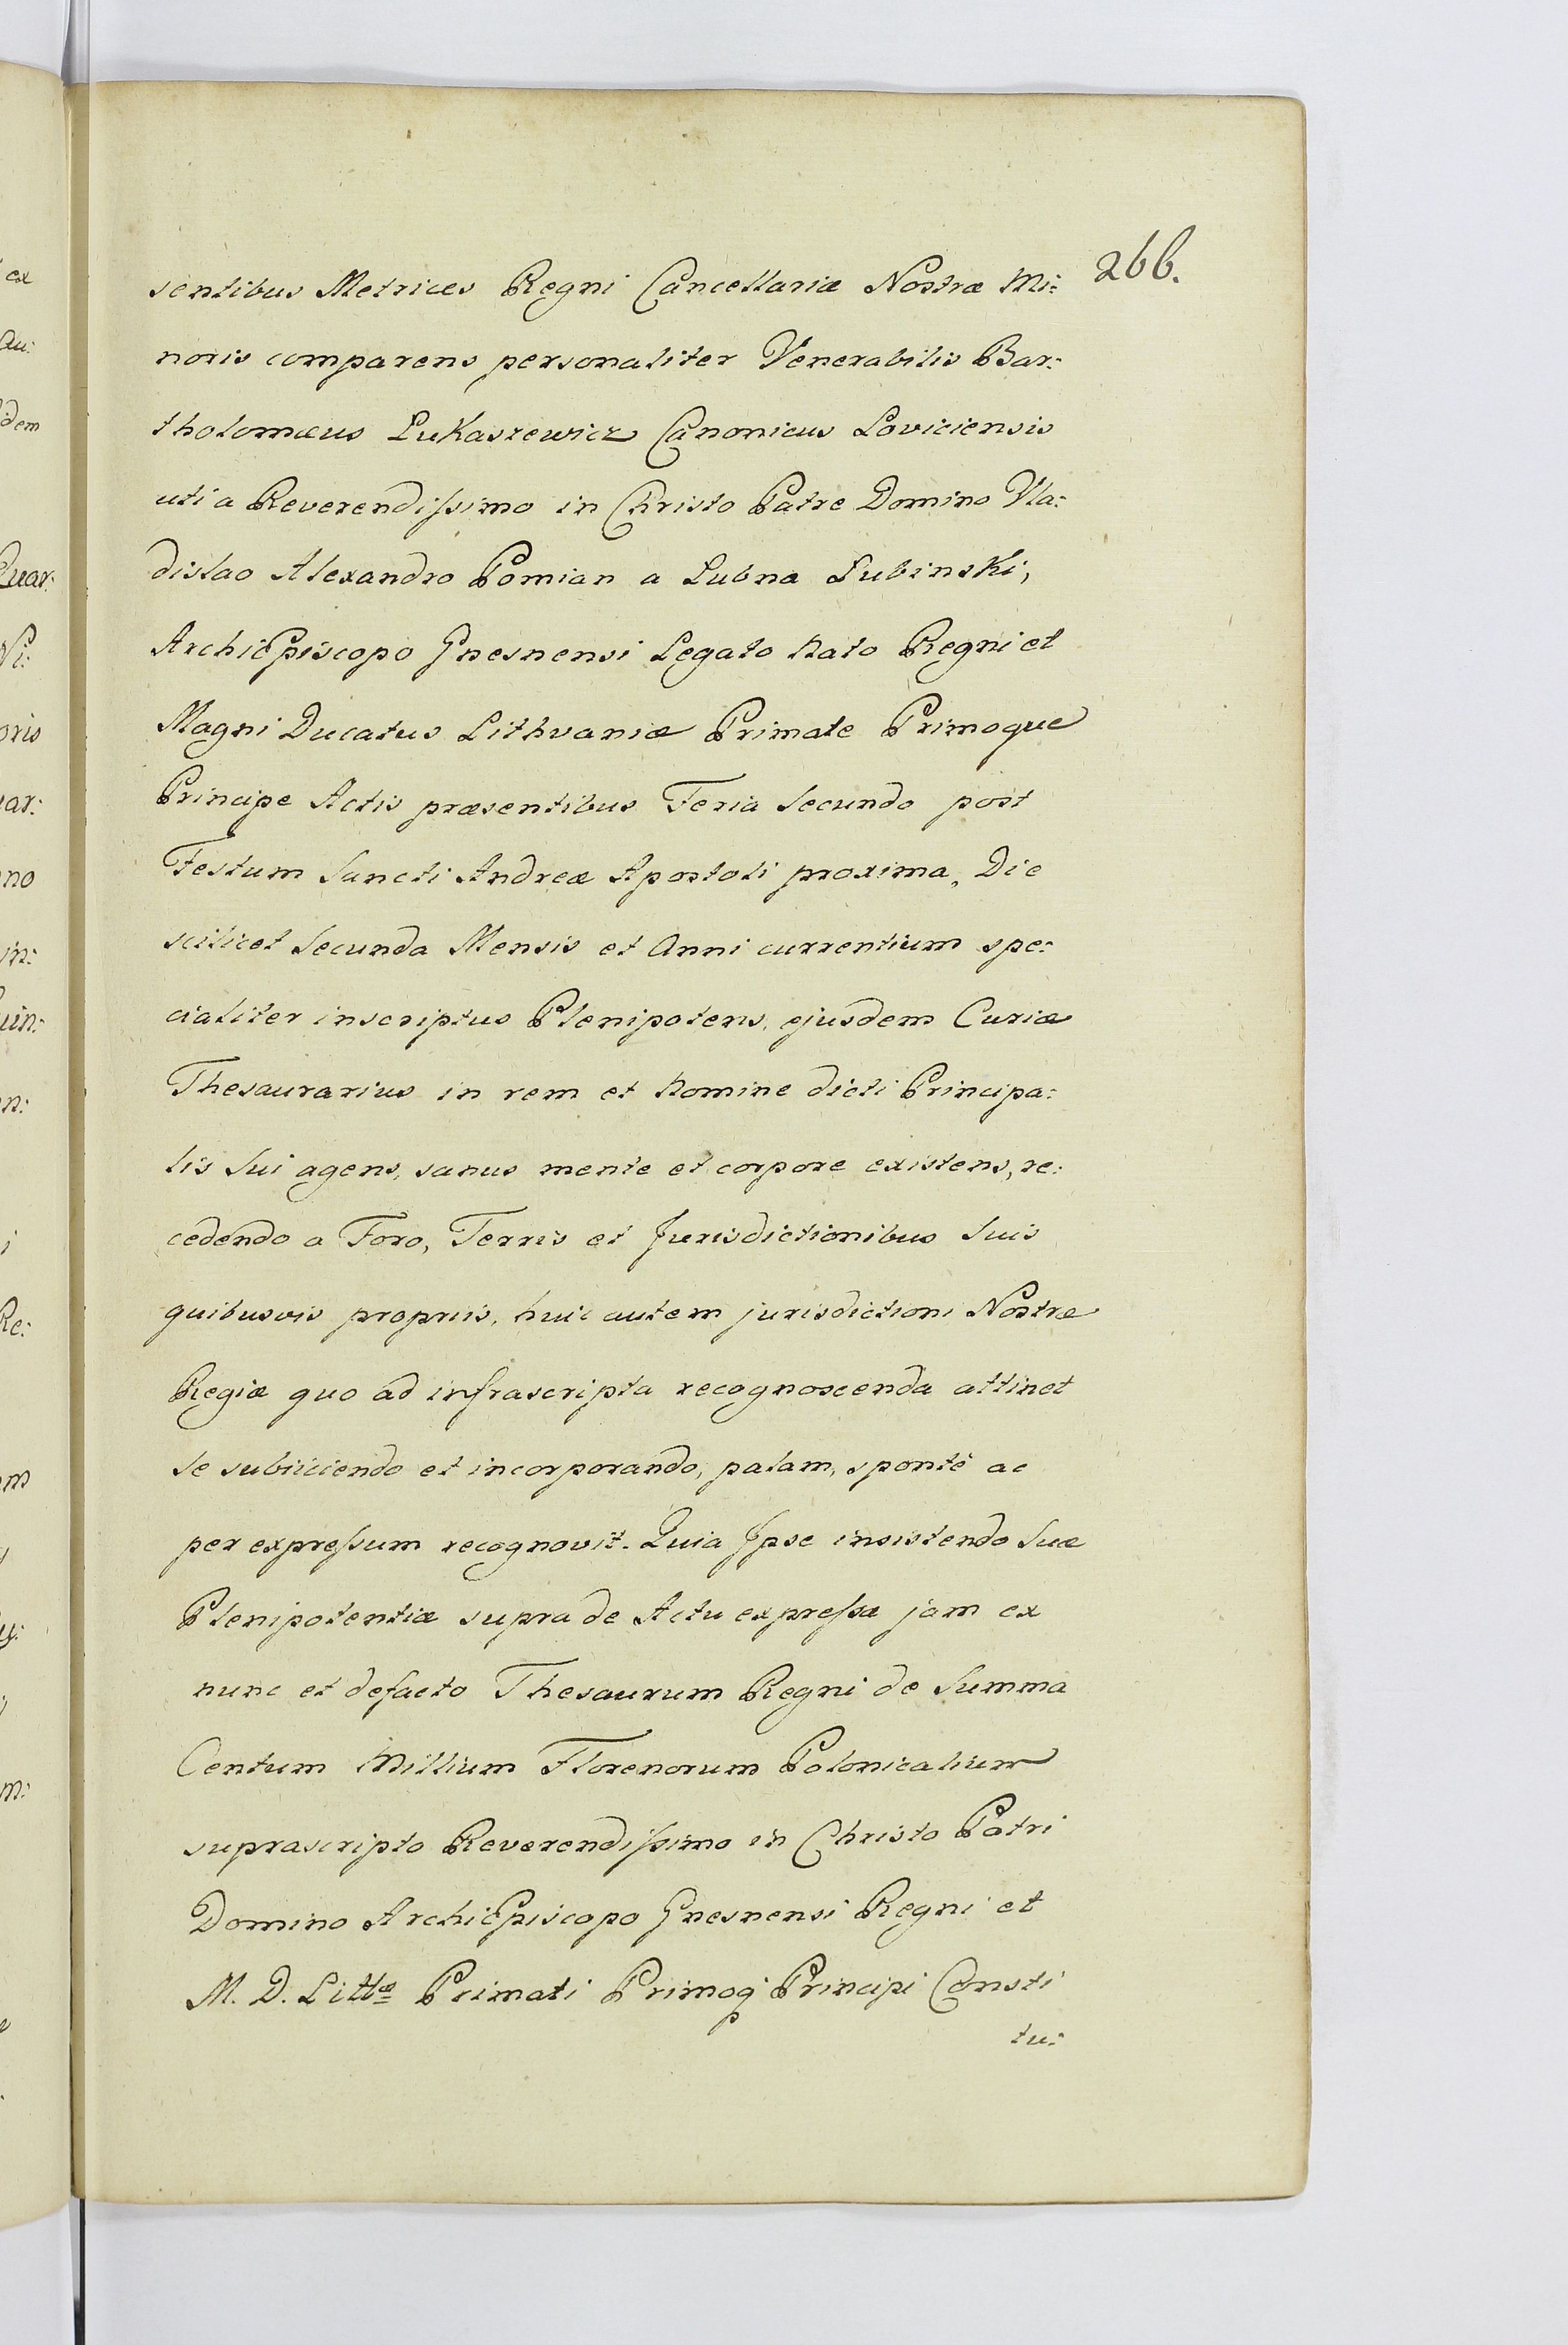 266.
sentibus Metrices Regni Cancellariæ Nostræ Mi:
noris comparens personaliter Venerabilis Bar:
tholomæus Lukaszewicz Canonicus Loviciensis
uti a Reverendissimo in Christo Patre Domino Vla:
dislao Alexandro Pomian a Lubna Lubinski,
ArchiEpiscopo Gnesnensi Legato Nato Regni et
Magni Ducatus Lithvaniæ Primate Primoque
Principe Actis præsentibus Feria Secundo post
Festum Sancti Andreæ Apostoli proxima, Die
scilicet Secunda Mensis et Anni currentium spe:
cialiter inscriptus Plenipotens, ejusdem Curiæ
Thesaurarius in rem et Nomine dicti Principa:
lis Sui agens, sanus mente et corpore existens, re:
cedendo a Foro, Terris et Jurisdictionibus Suis
quibusvis propriis, huic autem jurisdictioni Nostræ
Regiæ quo ad infrascripta recognoscenda attinet
Se subiiciendo et incorporando, palam, sponte ac
per expressum recognovit. Quia Ipse insistendo Suæ
Plenipotentiæ supra de Actu expressæ jam ex
nunc et defacto Thesaurum Regni de Summa
Centum Millium Florenorum Polonicalium
suprascripto Reverendissimo in Christo Patri
Domino ArchiEpiscopo Gnesnensi Regni et
M. D. Littæ Primati Primoq Principi Consti
tu:
ex
Au:
dem
Quar:
Ni:
oris
ar:
no
in:
uin:
n:
i
Re:
m
y:
m: